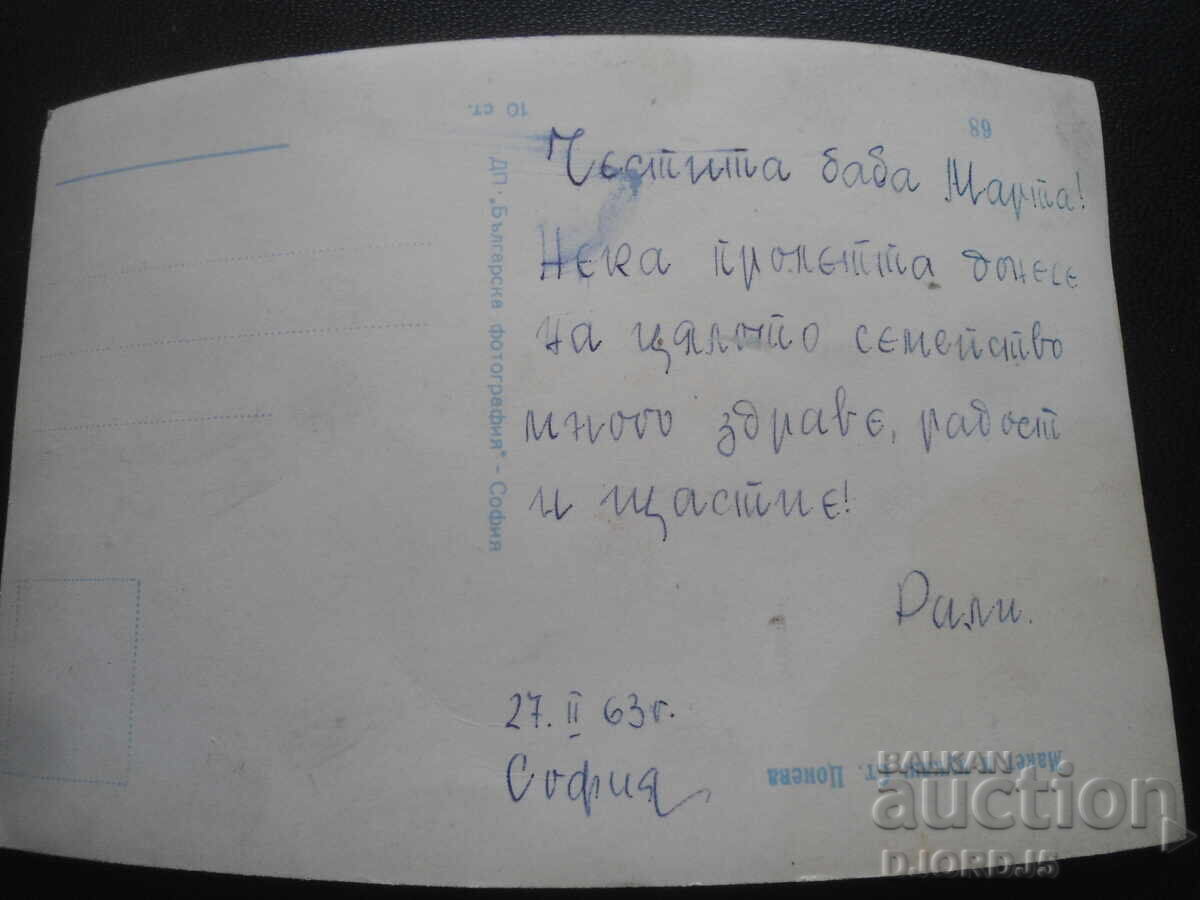 10 ст.
68
ДП. „Българска фотография" - София
Честита баба Марта!
Нека пролетта донесе
на цялото семейство
много здраве, радост
и щастие!
Рали.
27. II 63 г.
София
Макет
ст. Цонева
BALKAN
auction
DJORDJ5